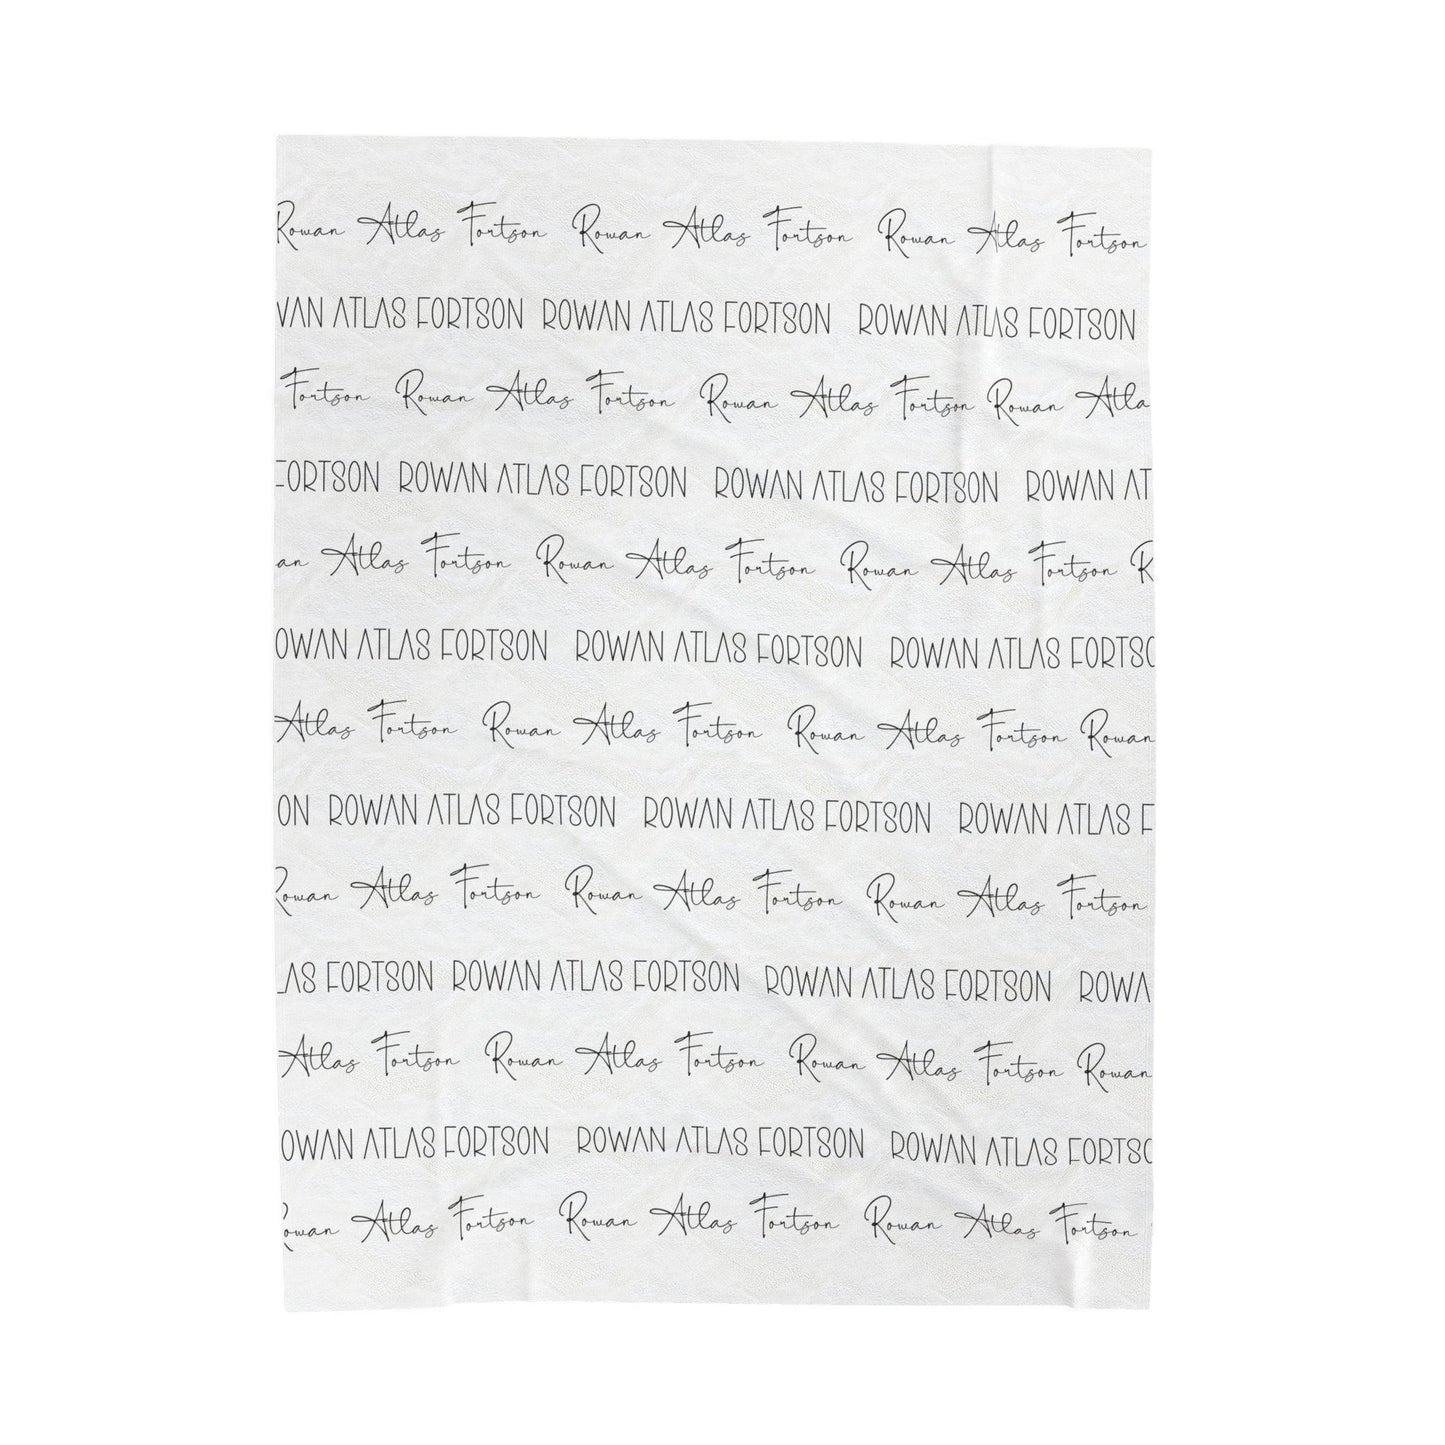 Rowan Atlas Fortson Rowan Atlas Fortson Rowan Atlas Fortson
WAN ATLAS FORTSON ROWAN ATLAS FORTSON ROWAN ATLAS FORTSON
Fortson Rowan Atlas Fortson Rowan Atlas Fortson Rowan Atla
FORTSON ROWAN ATLAS FORTSON ROWAN ATLAS FORTSON ROWAN AT
an Atlas Fortson Rowan Atlas Fortson Rowan Atlas Fortson R
OWAN ATLAS FORTSON ROWAN ATLAS FORTSON ROWAN ATLAS FORTSO
Atlas Fortson Rowan Atlas Fortson Rowan Atlas Fortson Rowan
ON ROWAN ATLAS FORTSON ROWAN ATLAS FORTSON ROWAN ATLAS F
Rowan Atlas Fortson Rowan Atlas Fortson Rowan Atlas Fortson
LAS FORTSON ROWAN ATLAS FORTSON ROWAN ATLAS FORTSON ROWA
Atlas Fortson Rowan Atlas Fortson Rowan Atlas Fortson Rowan
OWAN ATLAS FORTSON ROWAN ATLAS FORTSON ROWAN ATLAS FORTSO
Rowan Atlas Fortson Rowan Atlas Fortson Rowan Atlas Fortson